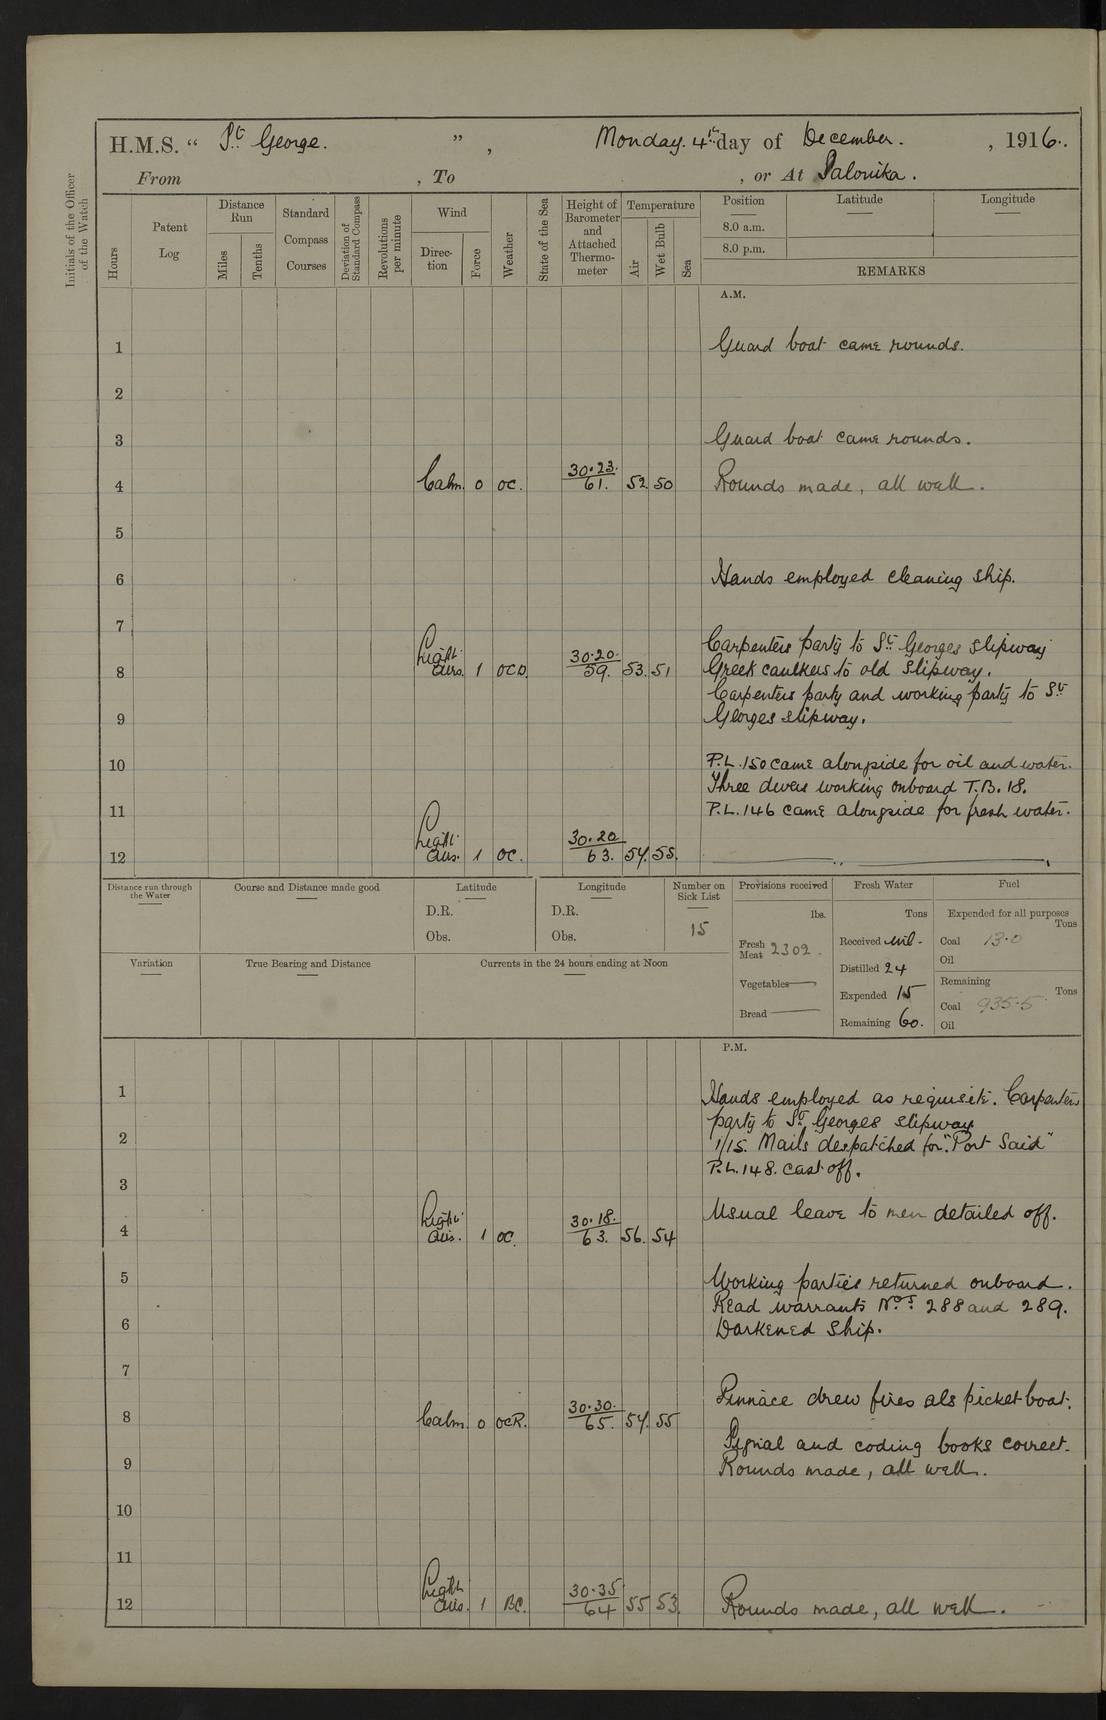 H.M.S. “ St George. ”, Monday. 4th day of December. , 1916.
From , To , or At Salonika.
Initials of the Officer of the Watch
Hours
Patent Log
Distance Run
Miles
Tenths
Standard Compass Courses
Deviation of Standard Compass
Revolutions per minute
Wind
Direction
Force
Weather
State of the Sea
Height of Barometer and Attached Thermometer
Temperature
Air
Wet Bulb
Sea
Position
Latitude
Longitude
8.0 a.m.
8.0 p.m.
REMARKS
A.M.
1 Guard boat came rounds.
2
3 Guard boat came rounds.
4 Calm. 0 oc. 30.23. 61. 52 50 Rounds made, all well.
5
6 Hands employed cleaning ship.
7
Carpenters party to St Georges slipway
8 Light airs. 1 OCD. 30.20. 59. 53. 51 Greek caulkers to old slipway.
Carpenters party and working party to St
9 Georges slipway.
10 P.L. 150 came alongside for oil and water.
Three divers working onboard T.B. 18.
11 P.L. 146 came alongside for fresh water.
12 Light airs. 1 OC. 30.20 63. 54. 55.
Distance run through the Water
Course and Distance made good
Latitude
D.R.
Obs.
Longitude
D.R.
Obs.
Number on Sick List
15
Provisions received
lbs.
Fresh Meat 2302.
Vegetables —
Bread —
Fresh Water
Tons
Received nil.
Distilled 24
Expended 15
Remaining 60.
Fuel
Expended for all purposes
Tons
Coal 13.0
Oil
Remaining
Tons
Coal 935.5
Oil
Variation
True Bearing and Distance
Currents in the 24 hours ending at Noon
P.M.
1 Hands employed as requisite. Carpenters
party to St Georges slipway
2 1/15. Mails despatched for "Port Said"
P.L. 148. cast off.
3
Usual leave to men detailed off.
4 Light airs. 1 OC. 30.18. 63. 56. 54
5 Working parties returned onboard.
Read warrants Nos. 288 and 289.
6 Darkened ship.
7
Pinnace drew fires als picket boat.
8 Calm. 0 OCR. 30.30. 65. 54. 55
Signal and coding books correct.
9 Rounds made, all well.
10
11
12 Light airs. 1 BC. 30.35 64 55 53. Rounds made, all well.